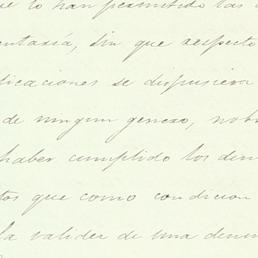 e lo han permitido las
entaria, sin que respecto
dicaciones se dispusiera
de ningun genero, no
haber cumplido los
tos que como condicion
la validez de una denun